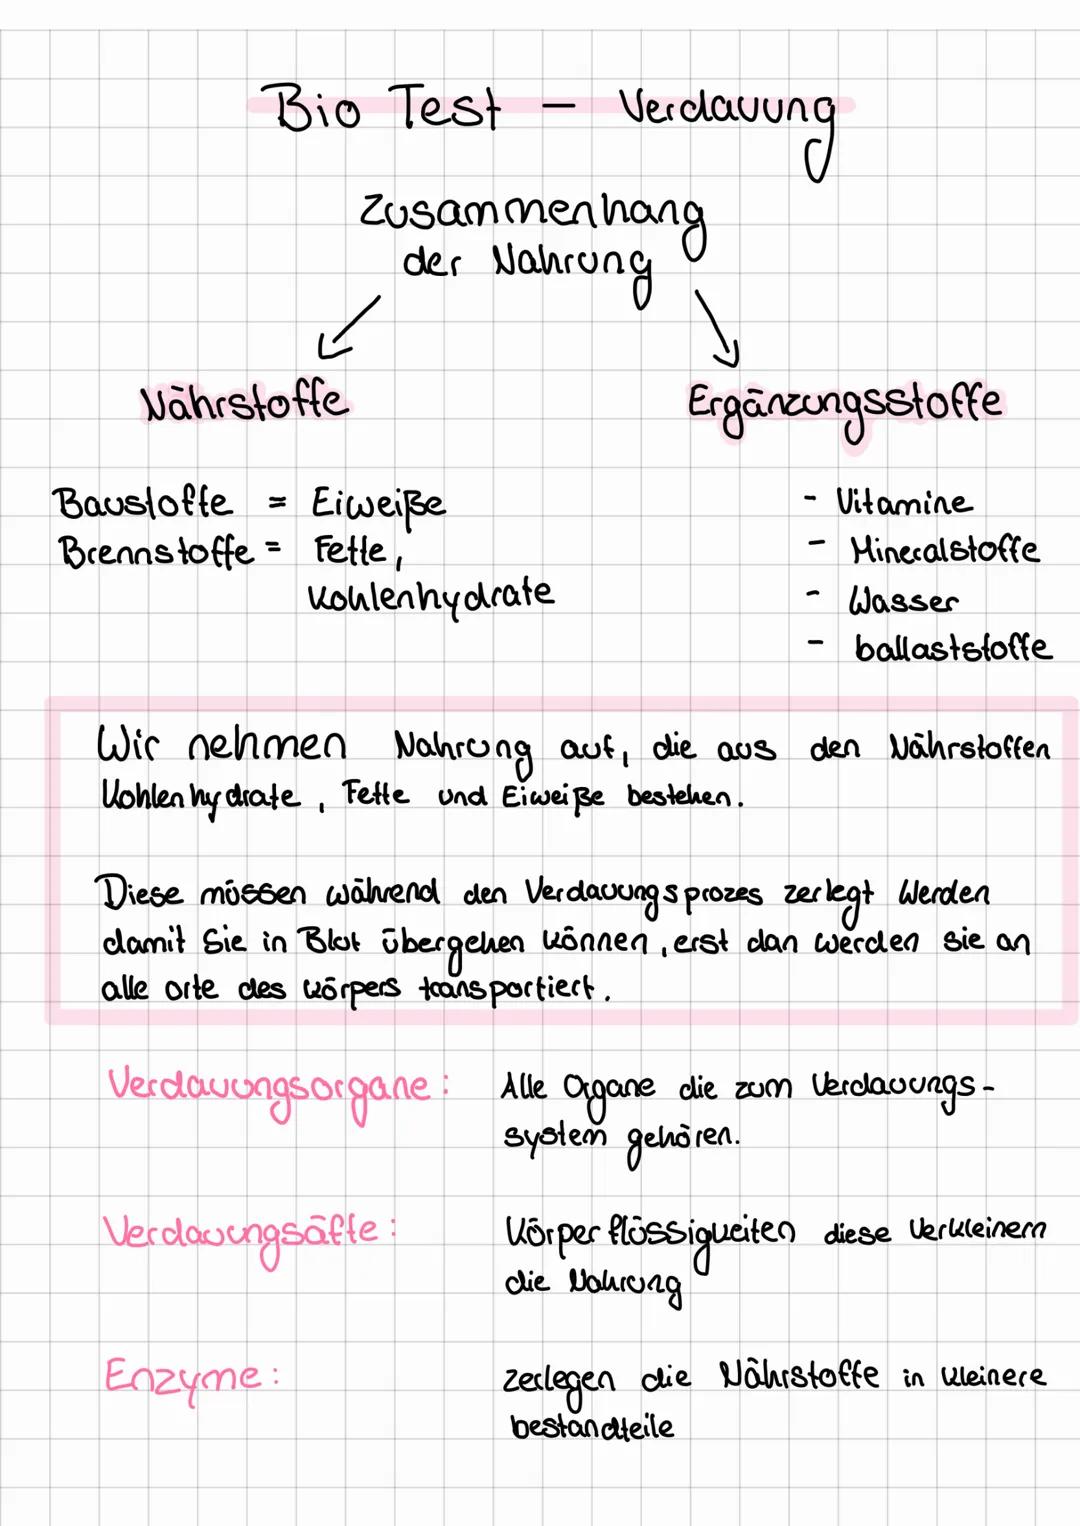 Bio Test - Verdauung
Zusammenhang
der Nahrung
Nährstoffe
Ergänzungsstoffe
Baustoffe = Eiweiße
Brennstoffe = Fette,
Kohlenhydrate
- Vitamine
- Mineralstoffe
- Wasser
- ballaststoffe
Wir nehmen Nahrung auf, die aus den Nährstoffen
Kohlenhydrate, Fette und Eiweiße bestehen.
Diese müssen während den Verdauungsprozes zerlegt Werden
damit Sie in Blut übergehen können, erst dan werden sie an
alle orte des körpers transportiert.
Verdauungsorgane: Alle Organe die zum Verdauungs-
system gehören.
Verdauungsäfte: Körperflüssigkeiten diese Verkleinern
die Nahrung
Enzyme: zerlegen die Nährstoffe in kleinere
bestandteile